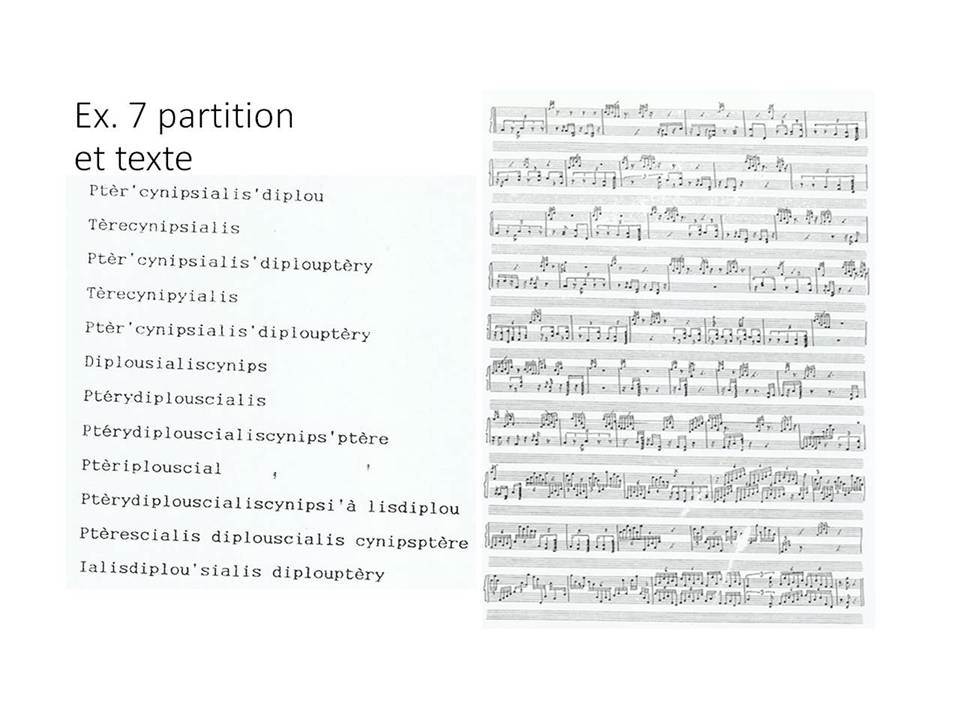 Ex. 7 partition
et texte
Ptèr'cynipsialis'diplou
Tèrecynipsialis
Ptèr'cynipsialis'diplouptèry
Tèrecynipyialis
Ptèr'cynipsialis'diplouptèry
Diplousialiscynips
Ptérydiplouscialis
Ptérydiplouscialiscynips'ptère
Ptèriplouscial , '
Ptèrydiplouscialiscynipsi'à lisdiplou
Ptèrescialis diplouscialis cynipsptère
Ialisdiplou'sialis diplouptèry